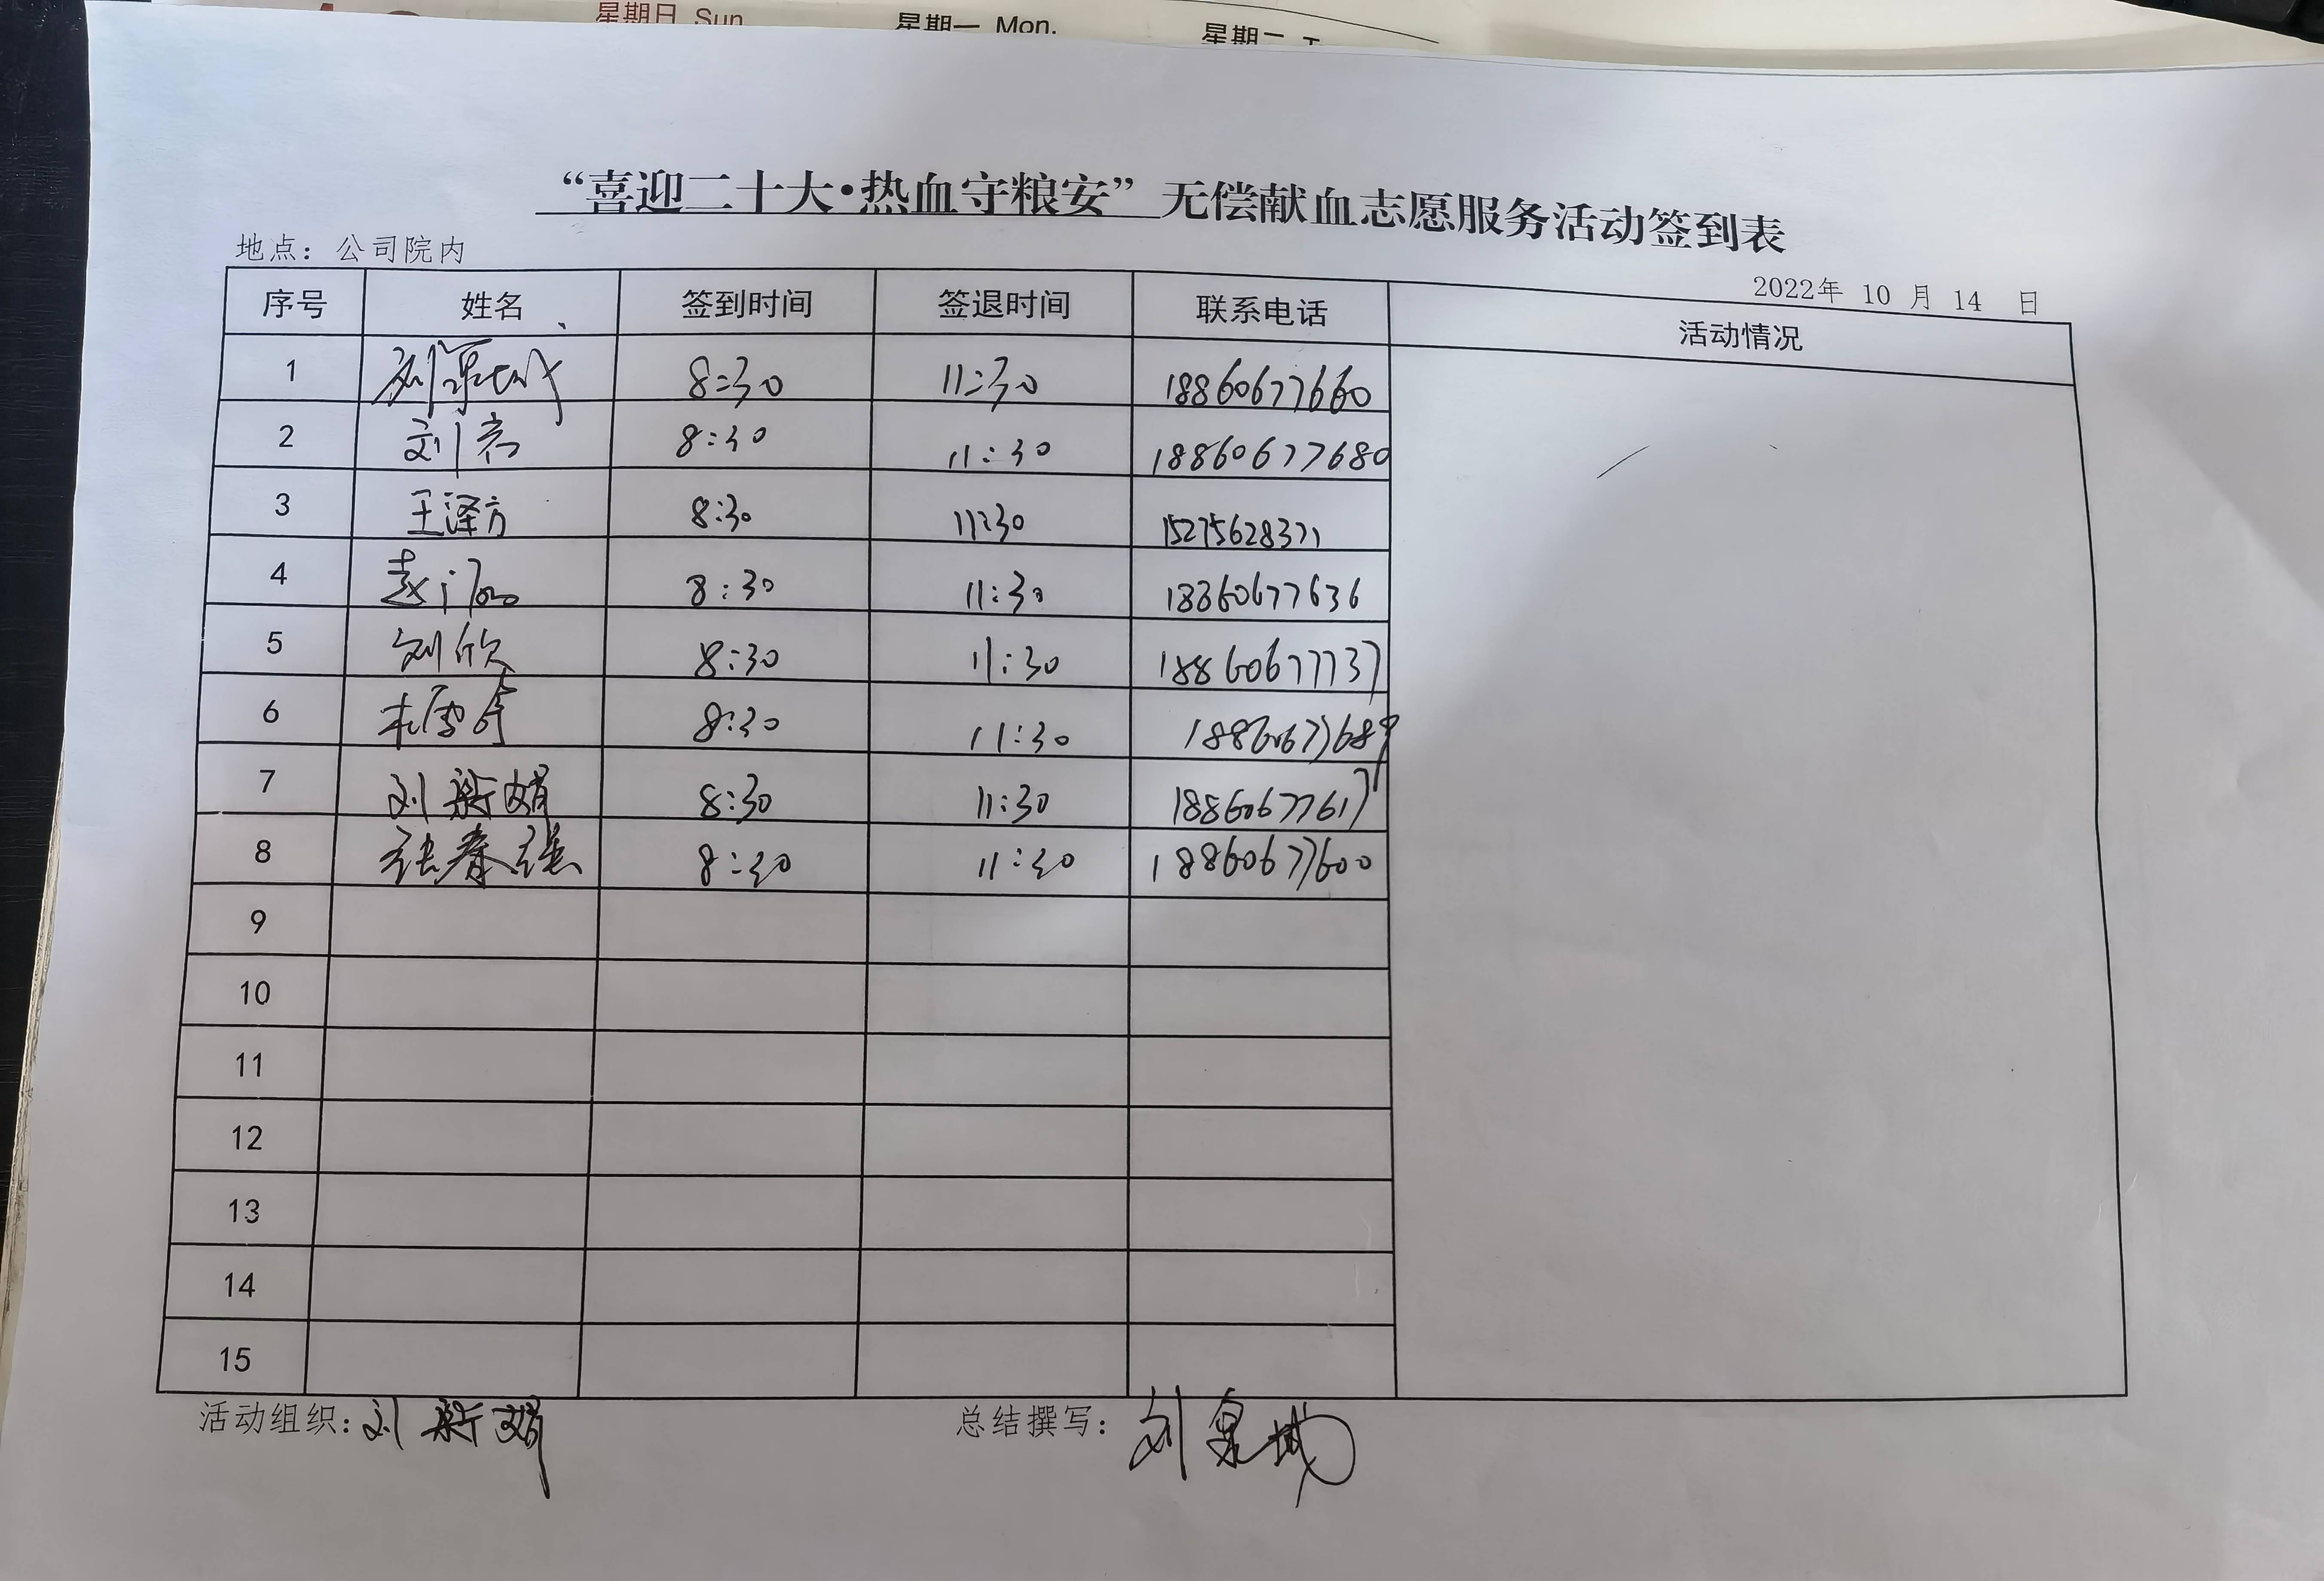 星期日 Sun.
星期一 Mon.
星期二
“喜迎二十大·热血守粮安” 无偿献血志愿服务活动签到表
地点：公司院内
2022年 10 月 14 日
序号 姓名 签到时间 签退时间 联系电话 活动情况
1 8:30 11:30 18860677660
2 刘亮 8:30 11:30 18860677680
3 王泽方 8:30 11:30 15275628371
4 8:30 11:30 18860677636
5 刘欣 8:30 11:30 18860677737
6 8:30 11:30 18860677689
7 刘新娟 8:30 11:30 18860677617
8 张春强 8:30 11:30 18860677600
9
10
11
12
13
14
15
活动组织：刘新娟 总结撰写：刘泉城